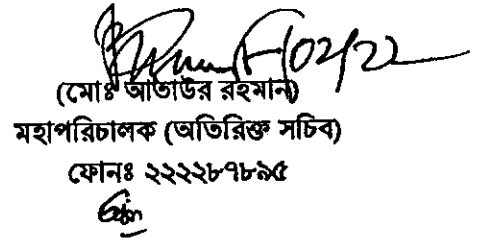 (মোঃ আতাউর রহমান)
মহাপরিচালক (অতিরিক্ত সচিব)
ফোনঃ ২২২২৮৭৮৯৫